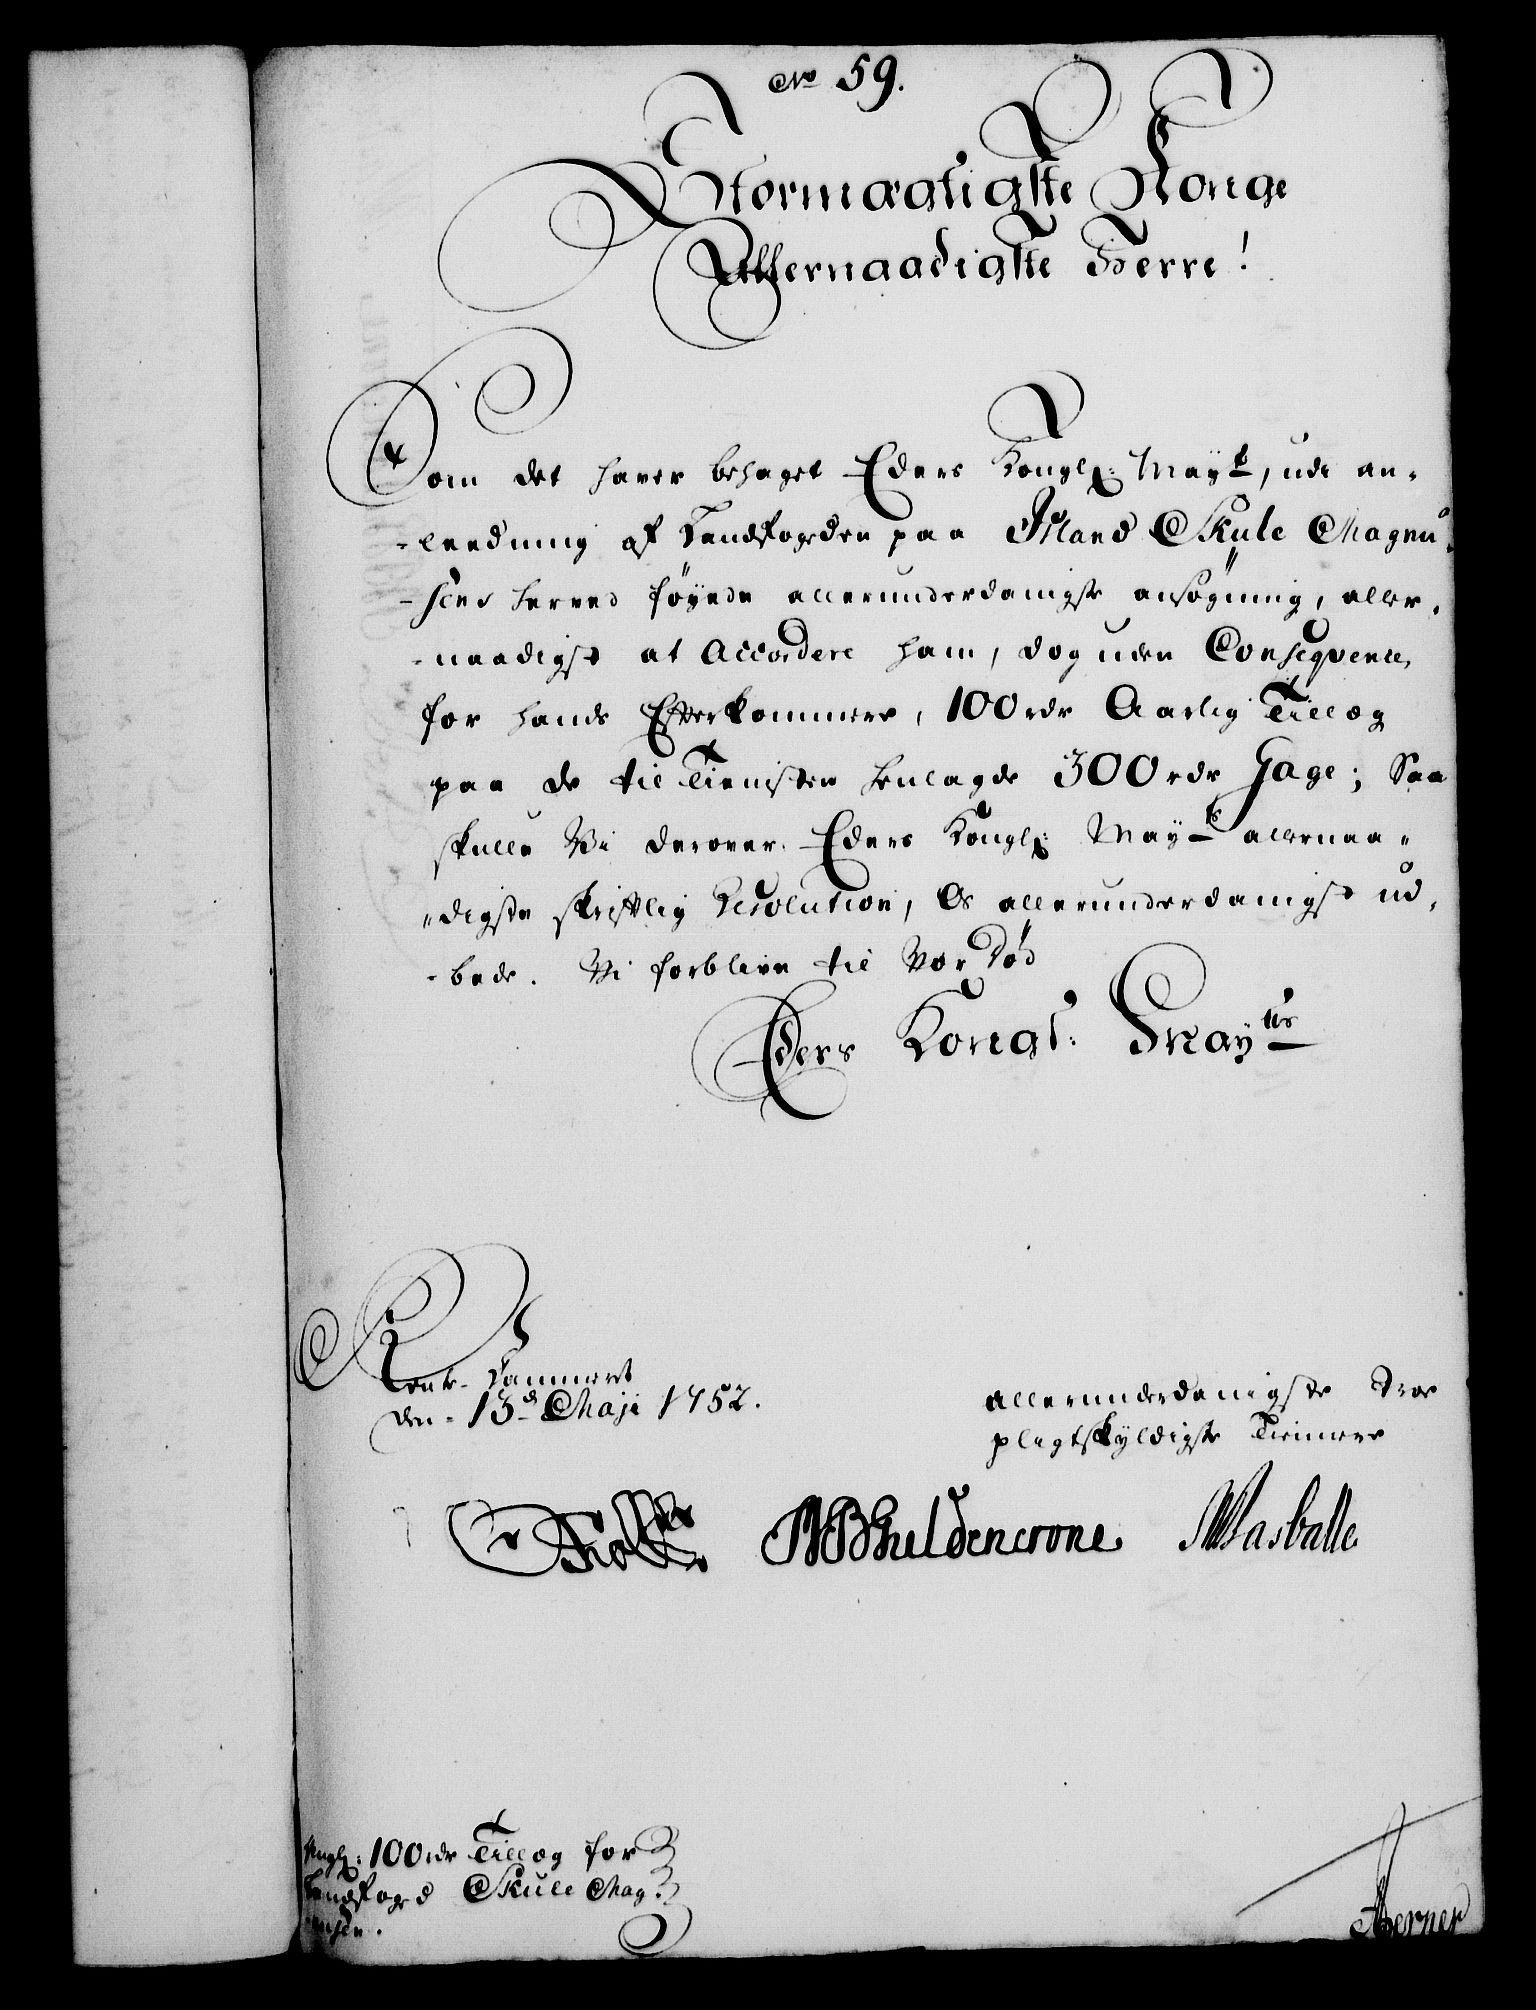 No 59.
Stormægtigste Konge
Allernaadigste Herre!
Som det haver behaget Eders Kongl: Mayt, udi an-
-leedning af Landfogden paa Island Skule Magnu-
-sens herved føyede allerunderdanigste ansøgning, aller-
-naadigst at Accordere ham, dog uden Conseqvence,
for hands Efterkommere, 100 rdr Aarlig Tillæg
paa de til Tienisten henlagde 300 rdr Gage; Saa
skulle Vi derover Eders Kongl: Mayts allernaa-
-digste skriftlig Resolution, Os allerunderdanigst ud-
-bede. Vi forblive til Vor Død
Eders Kongl: Mayts
Rente-Kammeret
den 13d Maji 1752.
allerunderdanigste troe
pligtskyldigste Tienere
Gheldencrone
Masballe
100 rdr Tillæg for
Landfoged Skule Mag-
nusen.